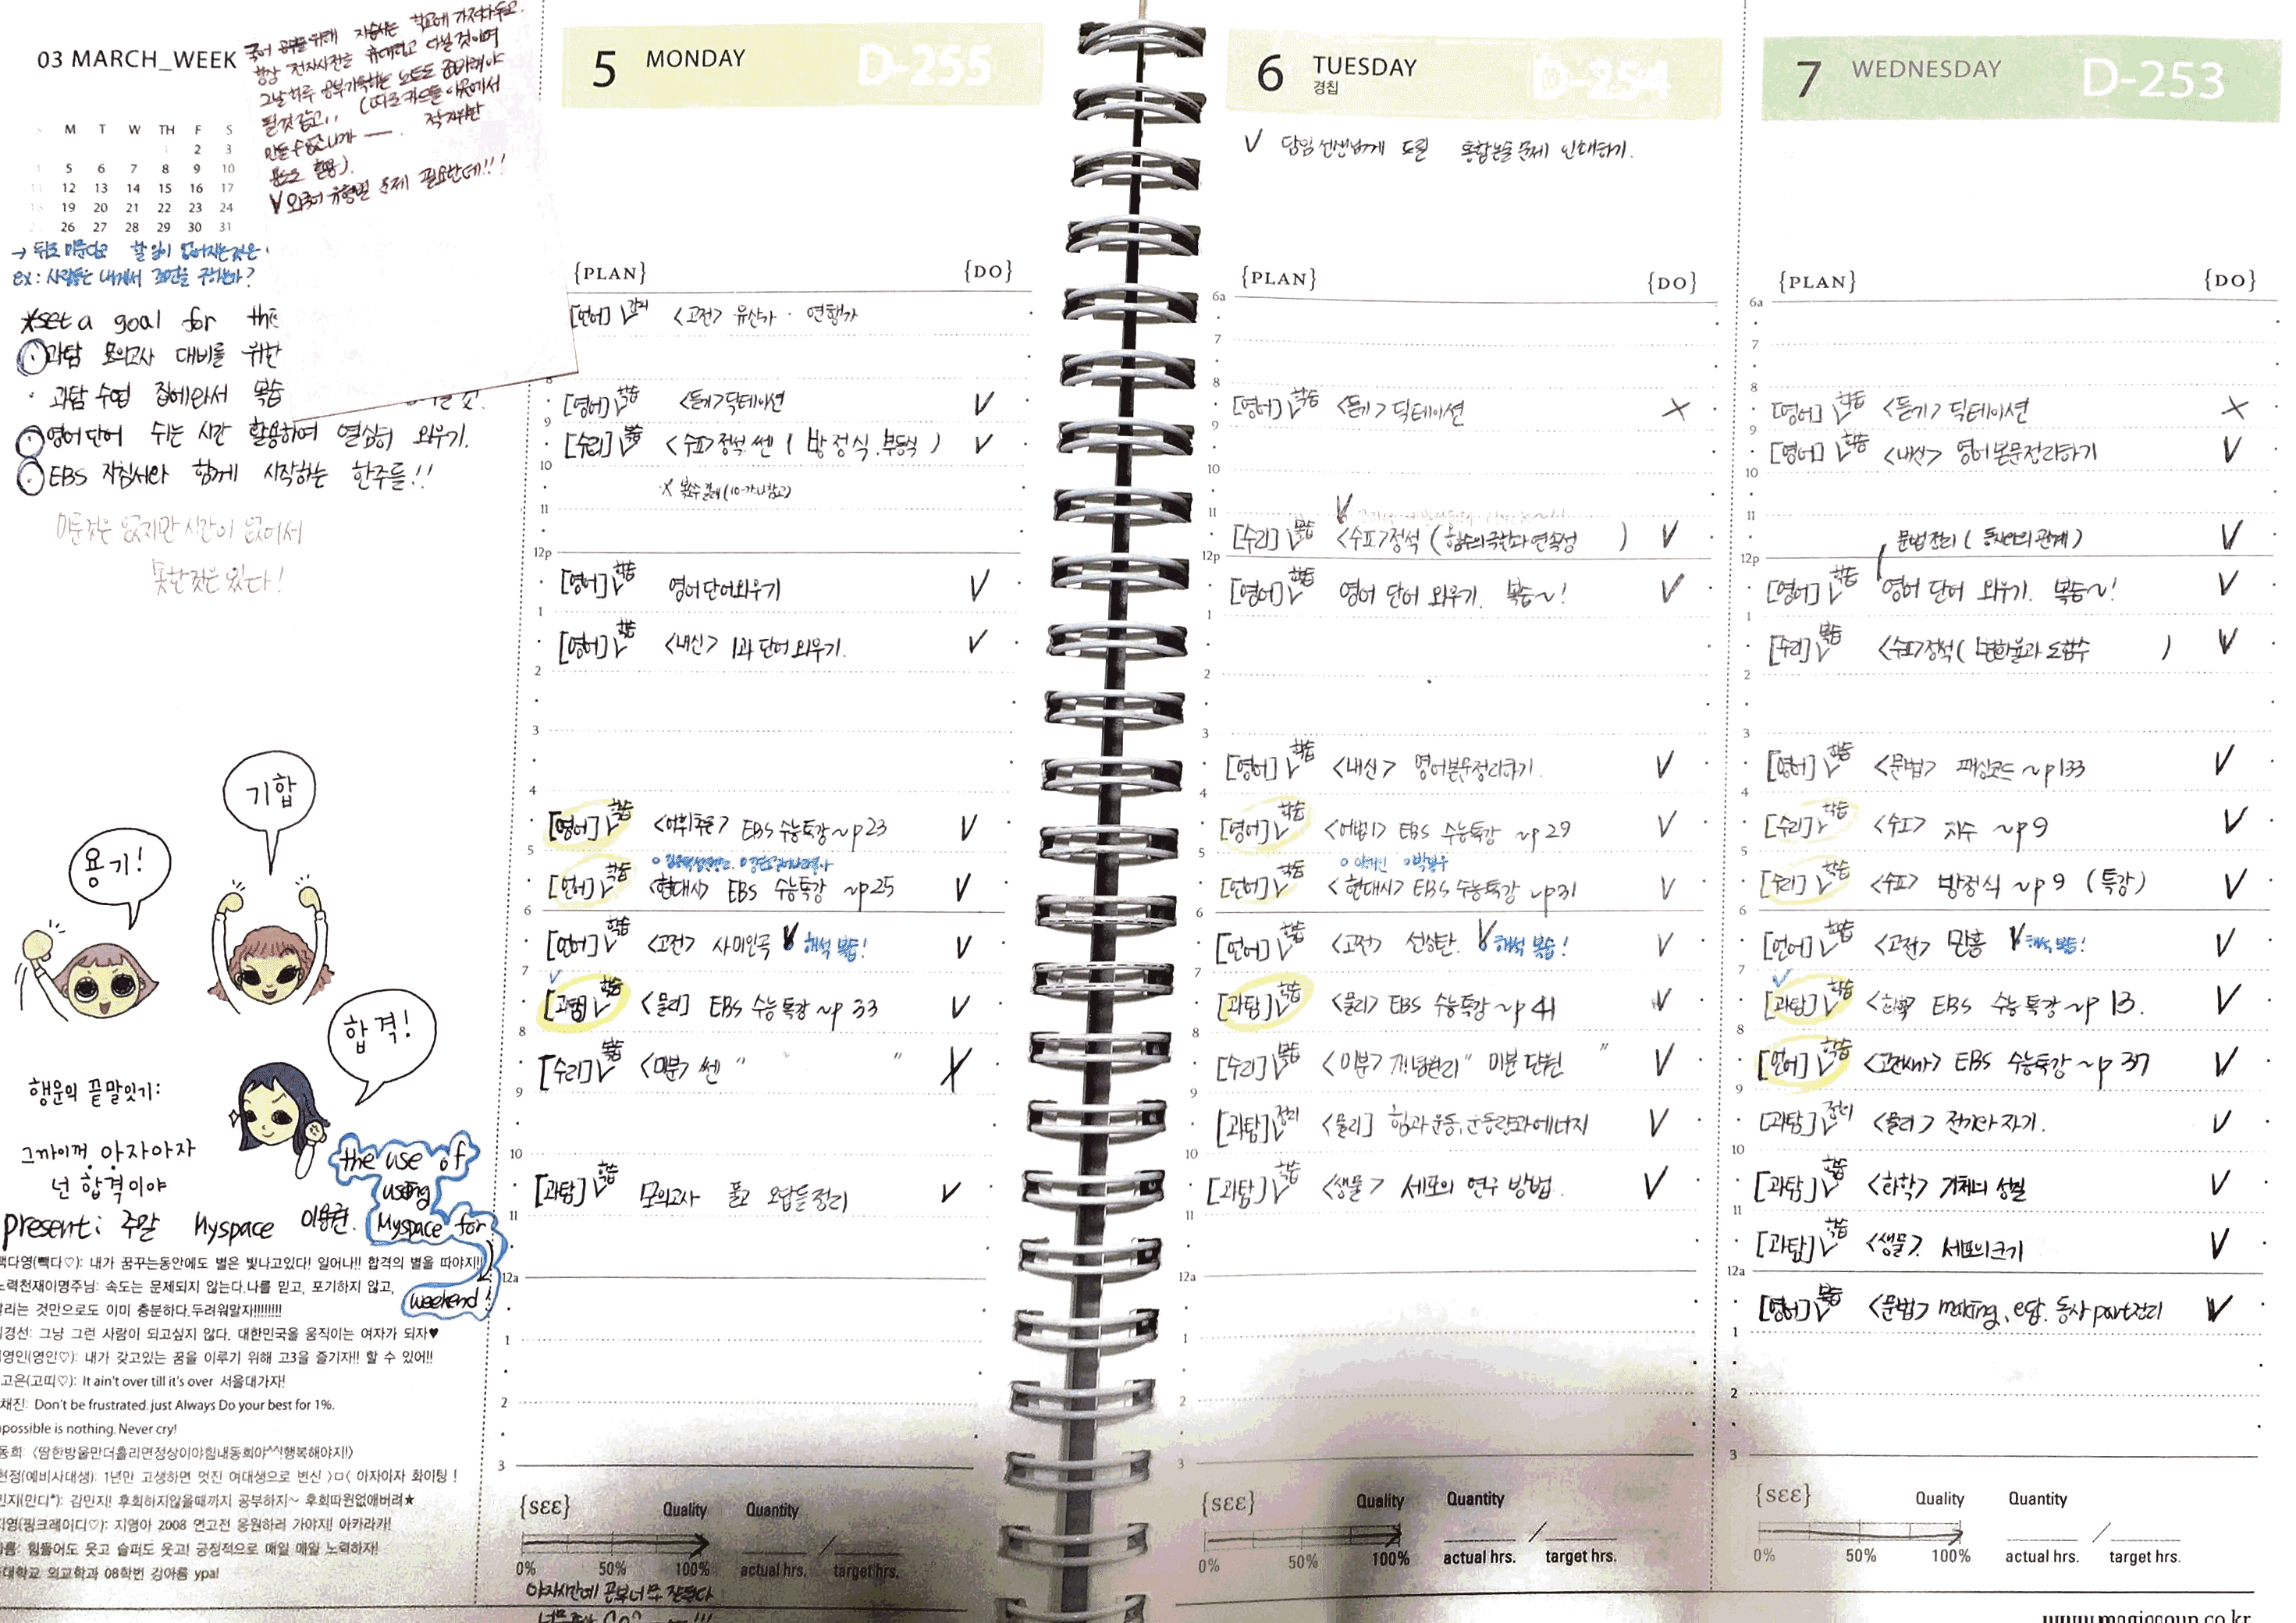 03 MARCH_WEEK
M T W TH F S
1 2 3
5 6 7 8 9 10
12 13 14 15 16 17
19 20 21 22 23 24
26 27 28 29 30 31
항상 전자사전는 휴대하고 다닐것이며
V 외국어 유형별 문제 필요한데!!!
→ 뒤로 미룬다고 할일이 없어지는것은
*set a goal for the
과탐 모의고사 대비를 위한
· 과탐 수업 집에와서 복습
영어단어 쉬는 시간 활용하여 열심히 외우기.
EBS 지침서와 함께 시작하는 한주를!!
미룬것은 없지만 시간이 없어서
못한것은 있다!
기합
용기!
합격!
행운의 끝말잇기:
그까이꺼 아자아자
넌 합격이야
present: 주말 Myspace 이용권.
the use of
using
Myspace for
weekend!
내가 꿈꾸는동안에도 별은 빛나고있다! 일어나!! 합격의 별을 따야지!!
노력천재이명주님: 속도는 문제되지 않는다.나를 믿고, 포기하지 않고,
리는 것만으로도 이미 충분하다.두려워말자!!!!!!!!
경선: 그냥 그런 사람이 되고싶지 않다. 대한민국을 움직이는 여자가 되자♥
영인(영인♡): 내가 갖고있는 꿈을 이루기 위해 고3을 즐기자!! 할 수 있어!!
고은(고띠♡): It ain't over till it's over 서울대가자!
채진: Don't be frustrated. just Always Do your best for 1%.
possible is nothing. Never cry!
동희: 〈땀한방울만더흘리면정상이야힘내동희야^^!행복해야지!〉
현정(예비사대생): 1년만 고생하면 멋진 여대생으로 변신 〉ㅁ〈 아자아자 화이팅 !
민지(민디*): 김민지! 후회하지않을때까지 공부하지~ 후회따윈없애버려★
지영(핑크레이디♡): 지영아 2008 연고전 응원하러 가야지! 아카라카!
름: 힘들어도 웃고 슬퍼도 웃고! 긍정적으로 매일 매일 노력하자!
대학교 외교학과 08학번 강아름 ypa!
5 MONDAY D-255
{PLAN} {DO}
[언어] <고전> 유산가 · 연행가
8
[영어] 학습 <듣기> 딕테이션 V
9
[수리] 복습 <수Ⅱ> 정석 쎈 ( 방정식.부등식 ) V
10
11
12p
[영어] 학습 영어단어외우기 V
1
[영어] 학습 <내신> 1과 단어외우기. V
2
3
4
[영어] 학습 <어휘추론> EBS 수능특강 ~p23 V
5
[언어] 학습 <현대시> EBS 수능특강 ~p25 V
6
[언어] 학습 <고전> 사미인곡 V 해석 복습! V
7
[과탐] 학습 <물리] EBS 수능특강 ~p 33 V
8
[수리] 복습 <미분> 쎈 " "
9
10
[과탐] 학습 모의고사 풀고 오답들정리 V
11
12a
1
2
3
{SEE} Quality Quantity
0% 50% 100% actual hrs. / target hrs.
야자시간에 공부너무 잘된다
6 TUESDAY D-254
경칩
V 담임선생님께 드릴 통합논술문제 인쇄하기.
{PLAN} {DO}
6a
7
8
[영어] 학습 <듣기> 딕테이션 X
9
10
11
[수리] 복습 <수Ⅱ>정석 ( 함수의극한과연속성 ) V
12p
[영어] 학습 영어 단어 외우기. 복습~! V
1
2
3
[영어] 학습 <내신> 영어본문정리하기. V
4
[영어] 학습 <어법1> EBS 수능특강 ~p 29 V
5
[언어] 학습 <현대시> EBS 수능특강 ~p31 V
6
[언어] 학습 <고전> 선상탄. V 해석 복습! V
7
[과탐] 학습 <물리> EBS 수능특강 ~p 41 V
8
[수리] 복습 <미분> 개념원리 " 미분 단원 " V
9
[과탐] 정리 <물리] 힘과운동, 운동량과에너지 V
10
[과탐] 학습 <생물> 세포의 연구 방법. V
11
12a
1
2
3
{SEE} Quality Quantity
0% 50% 100% actual hrs. / target hrs.
7 WEDNESDAY D-253
{PLAN} {DO}
6a
7
8
[영어] 학습 <듣기> 딕테이션 X
9
[영어] 학습 <내신> 영어본문정리하기 V
10
11
문법정리 ( 동사와의 관계 ) V
12p
[영어] 학습 영어 단어 외우기. 복습~! V
1
[수리] 복습 <수Ⅱ>정석 ( 변화율과 도함수 ) V
2
3
[영어] 학습 <문법> 패싱코드 ~p133 V
4
[수리] 학습 <수Ⅰ> 지수 ~p9 V
5
[수리] 학습 <수Ⅱ> 방정식 ~p9 (특강) V
6
[언어] 학습 <고전> 만흥 V 해석 복습! V
7
[과탐] 학습 <화학> EBS 수능특강 ~p 13. V
8
[언어] 학습 <고전시가> EBS 수능특강 ~p 37 V
9
[과탐] 정리 <물리> 전기와 자기. V
10
[과탐] 학습 <화학> 기체의 성질 V
11
[과탐] 학습 <생물>. 세포의크기 V
12a
[영어] 복습 <문법> making, ed. 동사 part정리 V
1
2
3
{SEE} Quality Quantity
0% 50% 100% actual hrs. / target hrs.